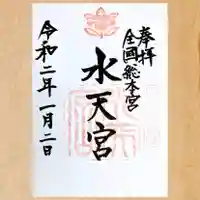 奉拝
全国総本宮
水天宮
令和二年一月二日